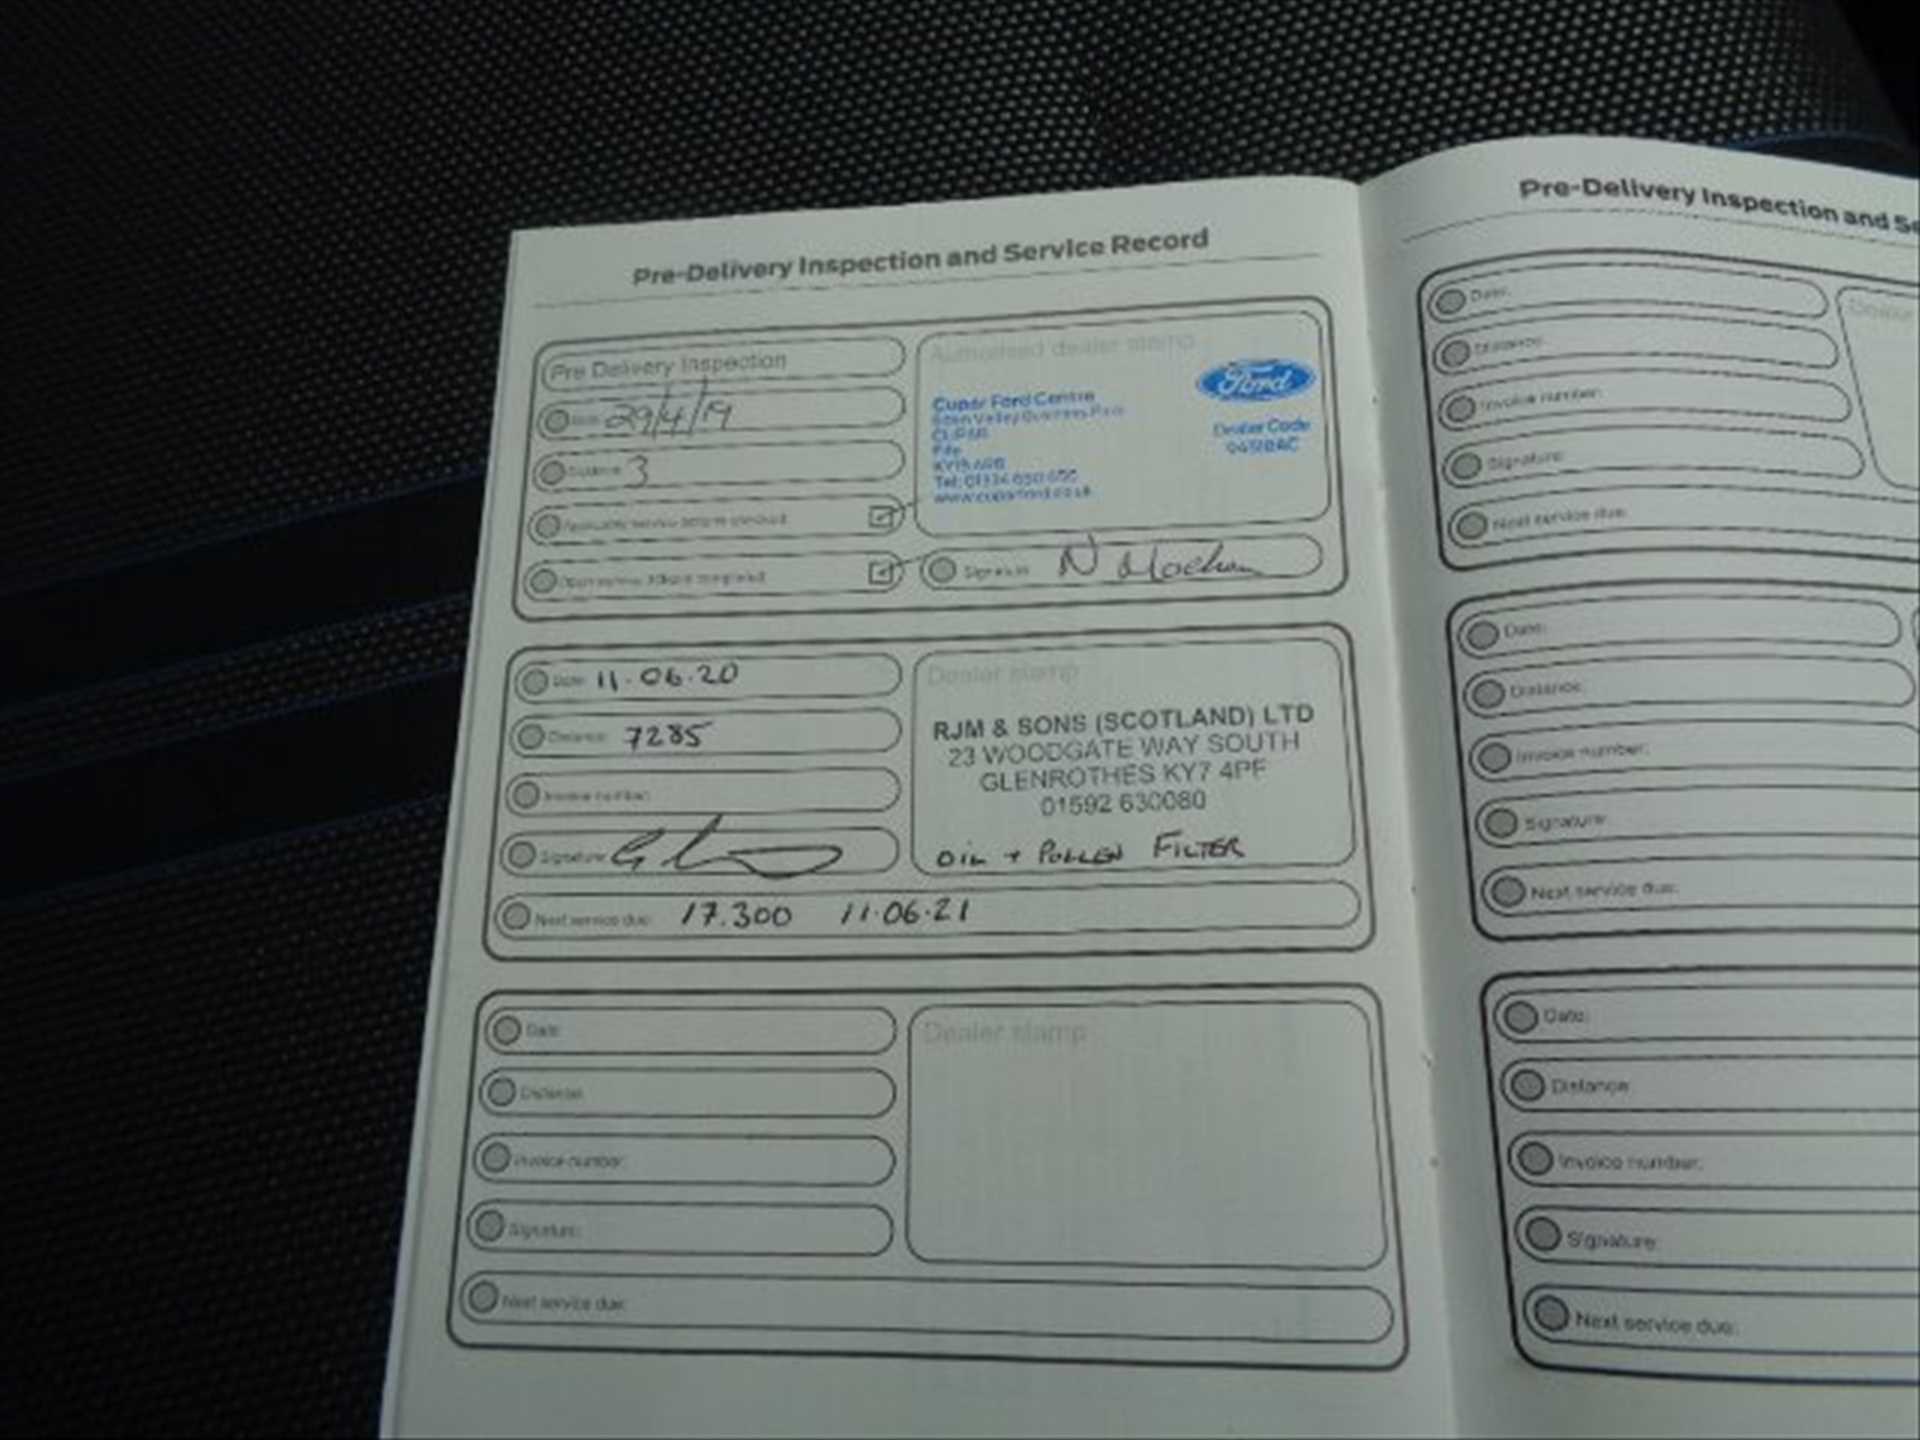 Pre-Delivery Inspection and Service Record
Pre Delivery Inspection
Date: 29/4/19
Distance: 3
Authorised dealer stamp
Cupar Ford Centre
CUPAR
Fife
Tel:
www.cuparford.co.uk
Ford
Dealer Code
Signature: N
Date: 11.06.20
Distance: 7285
Invoice number:
Signature:
Next service due: 17.300 11.06.21
Dealer stamp
RJM & SONS (SCOTLAND) LTD
23 WOODGATE WAY SOUTH
GLENROTHES KY7 4PF
01592 630080
OIL + POLLEN FILTER
Date:
Distance:
Invoice number:
Signature:
Next service due:
Dealer stamp
Pre-Delivery Inspection and Se
Date:
Distance:
Invoice number:
Signature:
Next service due:
Dealer
Date:
Distance:
Invoice number:
Signature:
Next service due:
Date:
Distance:
Invoice number:
Signature:
Next service due: